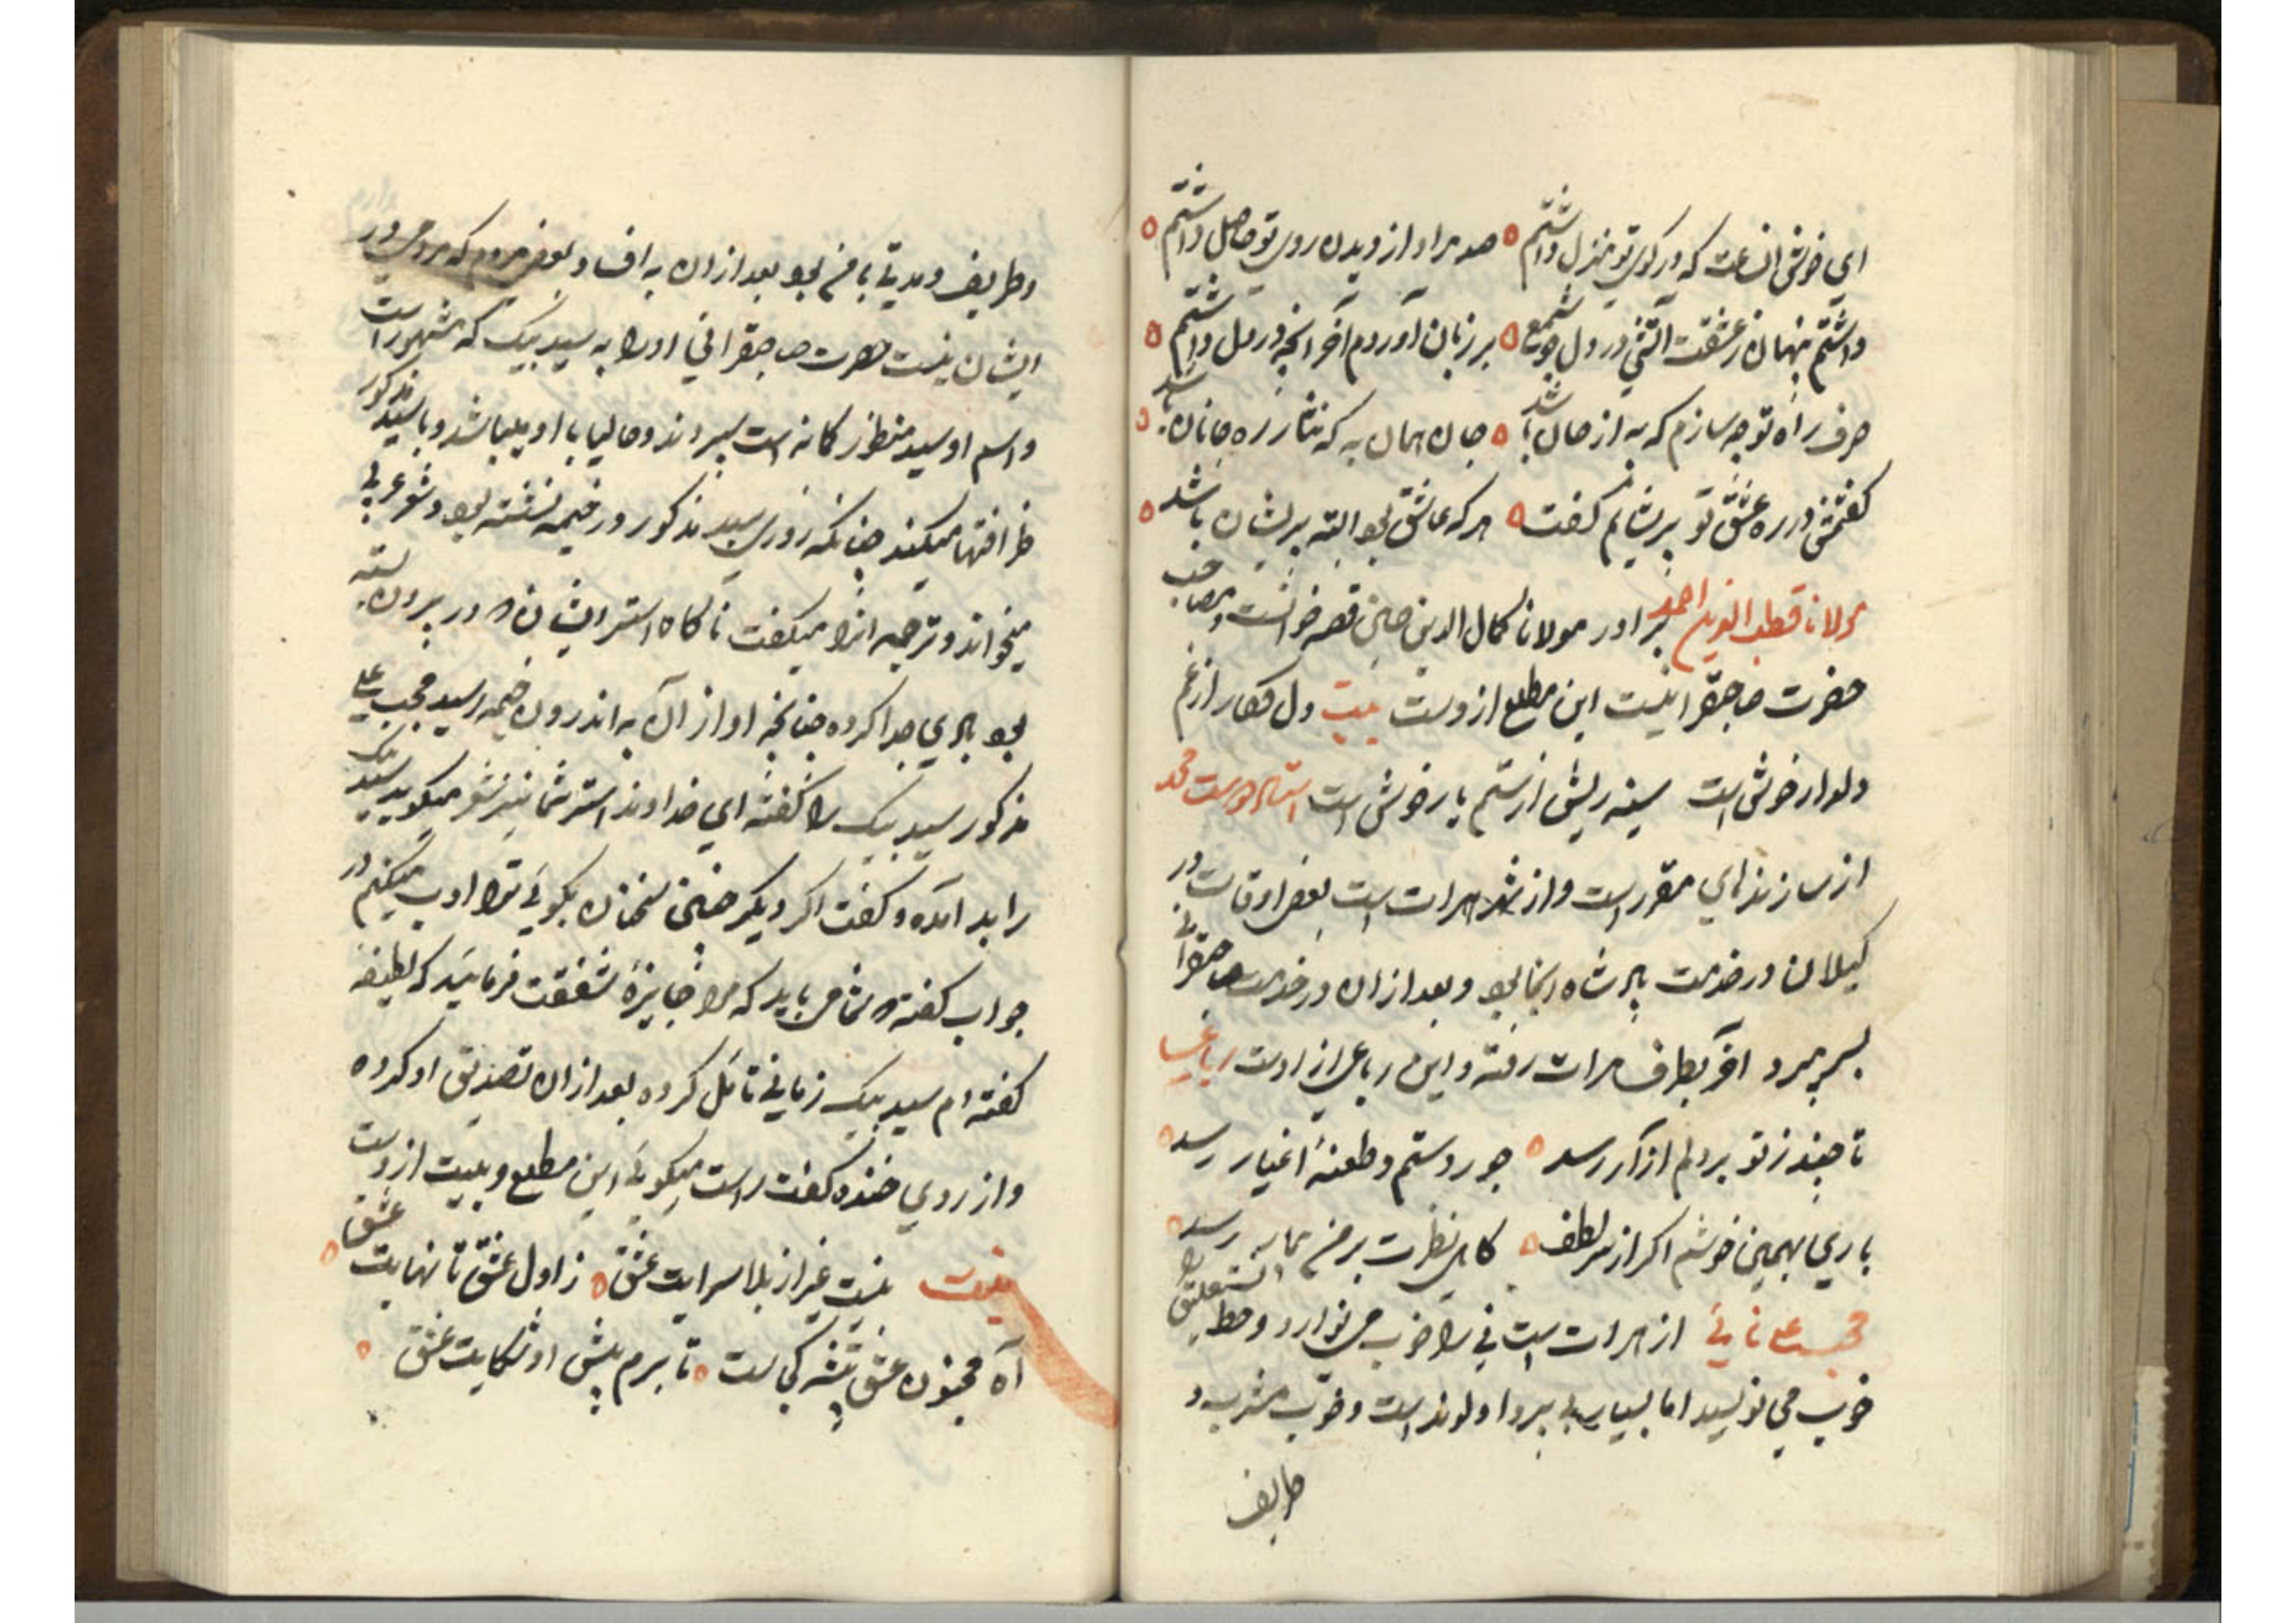 ای خوش انساعت که در کوی تو منزل داشتم صد مراد از دیدن روی تو حاصل داشتم
داشتم پنهان ز عشقت آتشی در دل چو شمع بر زبان آوردم آخر آنچه در دل داشتم
صرف راه تو چه سازم که به از جان باشد جان همان به که نثار ره جانان باشد
کفتمش در ره عشق تو پریشانم کفت هر که عاشق بود البته پریشان باشد
مولانا قطب الدین احمد برادر مولانا کمال الدین حسین قصه خوانست ومصاحب
حضرت صاحبقرانیست این مطلع ازوست بیت دل فکار از غم
دلدار خوش است سینه ریش از ستم یار خوش است استاد دوست محمد
از سازندهای مقرر است و از شهر هرات است بعضی اوقات در
کیلان در خدمت پادشاه انجا بود و بعد ازان در خدمت صاحبقرانی
بسر میبرد آخر بطرف هرات رفته و این رباعی از اوست رباعی
تا چند ز تو بر دلم ازار رسد جور و ستم و طعنهٔ اغیار رسد
باری بهمین خوشم اکر از سر لطف کاهی نظرت بر من بیمار رسد
محب علی نائی از هرات است نی را خوب می نوازد و خط نستعلیق را
خوب می نویسد اما بسیار بی پروا و لوند است و خوب مشرب و
ظریف
وظریف و مدتی با من بود بعد ازان به افساد بعضی مردم که مردمی در
ایشان نیست حضرت صاحبقرانی او را به سید بیک که مشهور است
واسم او سید منظور کمانه است سپردند وحالیا با او میباشد و با سید مذکور
ظرافتها میکند چنانکه روزی سید مذکور در خیمه نشسته بود و شعر عربی
میخواند و ترجمه انرا میکفت ناکاه استر ایشان که در بیرون بسته
بود بادی جدا کرده چنانچه اواز آن به اندرون خیمه رسید محب علی
مذکور سید بیک را کفته ای خداوند استر شما نیز شعر میکوید سید بیک
را بد آمده و کفت اکر دیکر چنین سخنان بکوئی ترا ادب میکنم در
جواب کفته که شما می باید که مرا جایزهٔ شفقت فرمائید که لطیفه
کفته ام سید بیک زمانی تأمل کرده بعد ازان تصدیق او کرده
واز روی خنده کفت راست میکوئی این مطلع و بیت ازوست
بیت نیست غیر از بلا سرایت عشق ز اول عشق تا نهایت عشق
آه مجنون عشق پیشه کجاست تا برم پیش او شکایت عشق